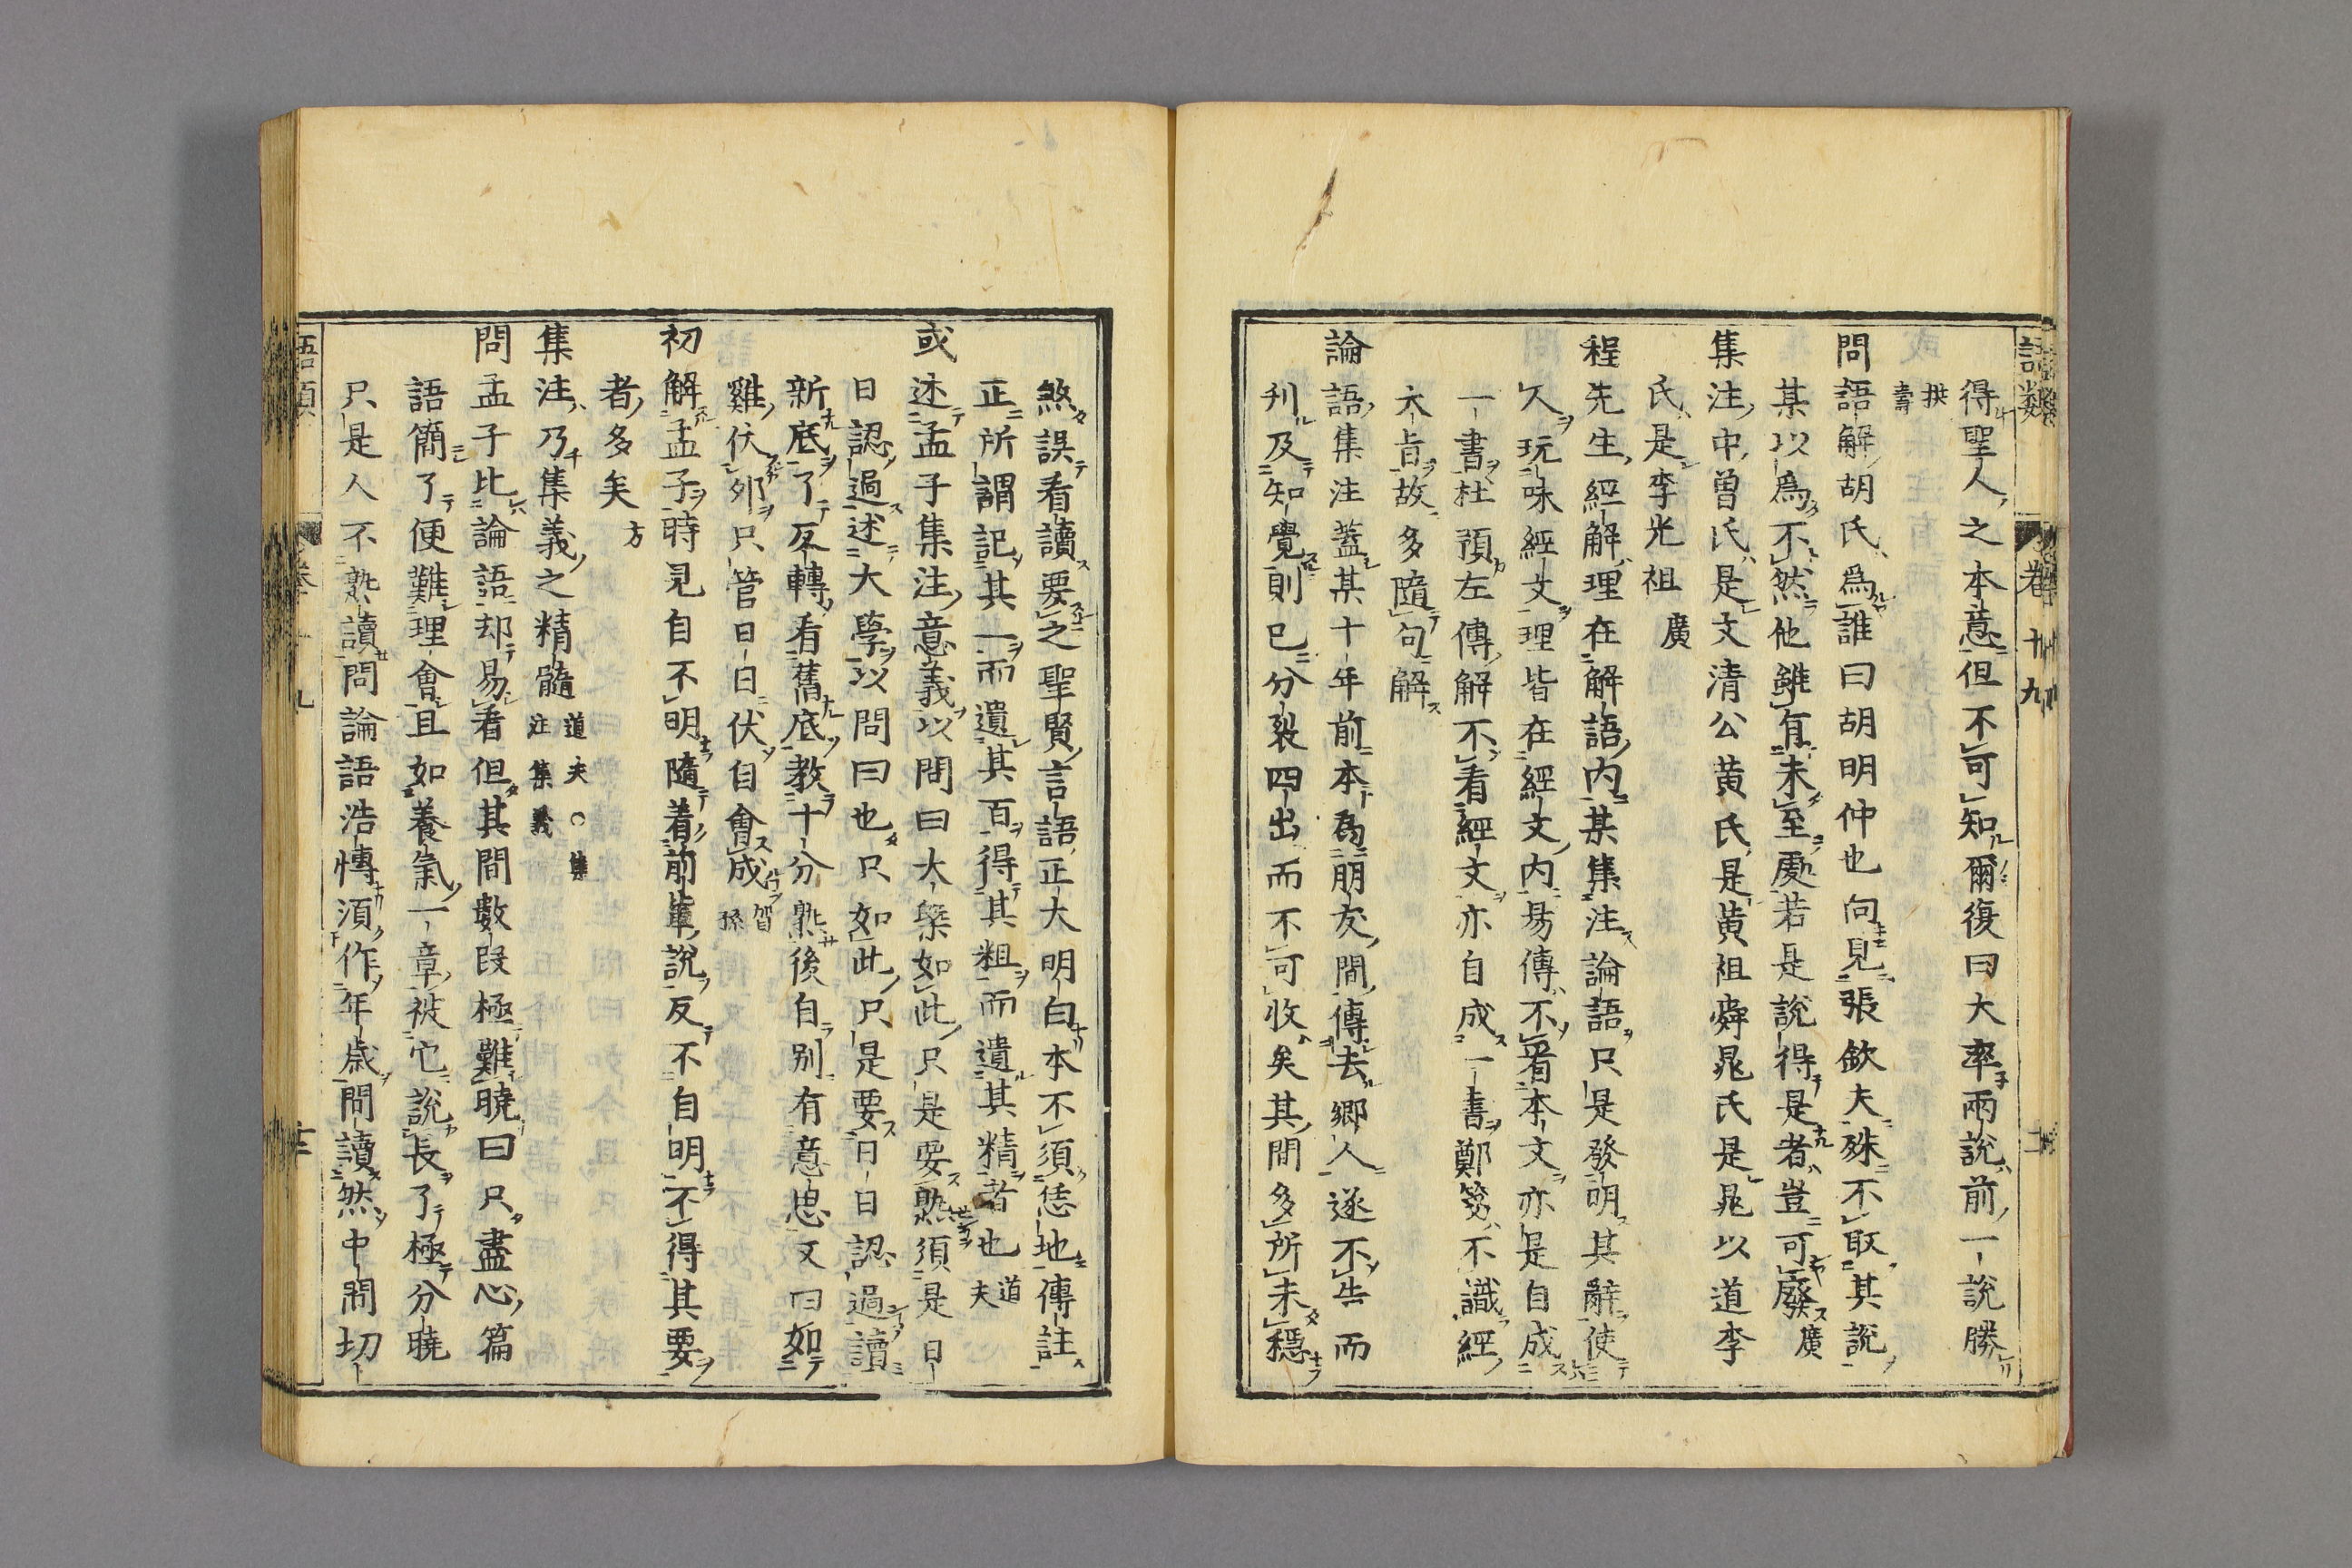 語類 卷十九
得聖人之本意但不可知爾復曰大率兩說前一說勝
拱壽
問語解胡氏為誰曰胡明仲也向見張欽夫殊不取其說
某以為不然他雖有未至處若是說得是者豈可廢廣
集注中曾氏是文清公黃氏是黃祖舜晁氏是晁以道李
氏是李光祖 廣
程先生經解理在解語內某集注論語只是發明其辭使
人玩味經文理皆在經文內易傳不看本文亦是自成
一書杜預左傳解不看經文亦自成一書鄭箋不識經
大旨故多隨句解
論語集注蓋某十年前本為朋友間傳去鄉人遂不告而
刋及知覺則已分裂四出而不可收矣其間多所未穩
煞誤看讀要之聖賢言語正大明白本不須恁地傳註
正所謂記其一而遺其百得其粗而遺其精者也 道夫
或述孟子集注意義以問曰大槩如此只是要熟須是日
日認過述大學以問曰也只如此只是要日日認過讀
新底了反轉看舊底教十分熟後自別有意思又曰如
雞伏卵只管日日伏自會成 賀孫
初解孟子時見自不明隨着前輩說反不自明不得其要
者多矣 方
集注乃集義之精髓 道夫○集注集義
問孟子比論語却易看但其間數段極難曉曰只盡心篇
語簡了便難理會且如養氣一章被它說長了極分曉
只是人不熟讀問論語浩慱須作年歲間讀然中間切
語類 卷十九 十三